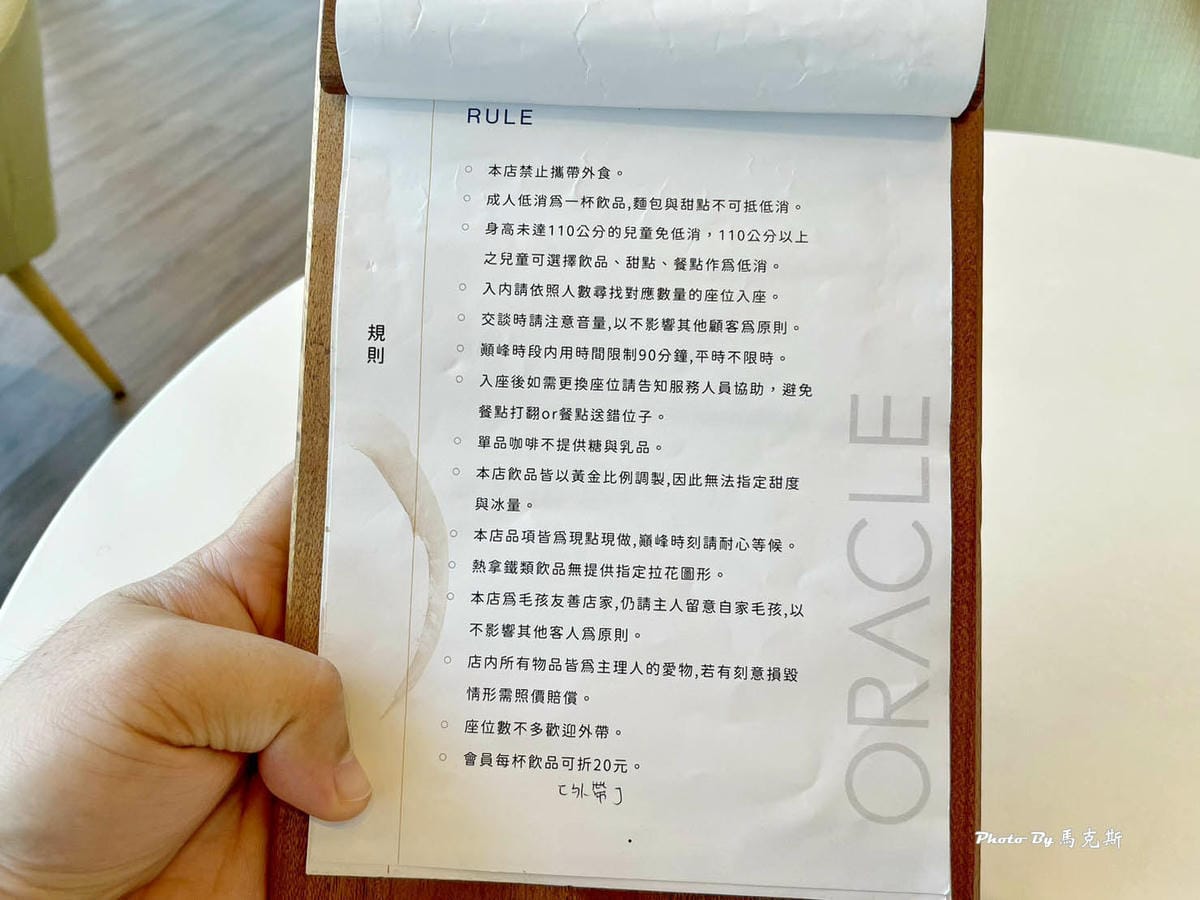 RULE
規則
本店禁止攜帶外食。
成人低消爲一杯飲品,麵包與甜點不可抵低消。
身高未達110公分的兒童免低消，110公分以上
之兒童可選擇飲品、甜點、餐點作爲低消。
入内請依照人數尋找對應數量的座位入座。
交談時請注意音量,以不影響其他顧客爲原則。
巔峰時段内用時間限制90分鐘,平時不限時。
入座後如需更換座位請告知服務人員協助，避免
餐點打翻or餐點送錯位子。
單品咖啡不提供糖與乳品。
本店飲品皆以黃金比例調製,因此無法指定甜度
與冰量。
本店品項皆爲現點現做,巔峰時刻請耐心等候。
熱拿鐵類飲品無提供指定拉花圖形。
本店爲毛孩友善店家,仍請主人留意自家毛孩,以
不影響其他客人爲原則。
店内所有物品皆爲主理人的愛物,若有刻意損毀
情形需照價賠償。
座位數不多歡迎外帶。
會員每杯飲品可折20元。
[外帶]
ORACLE
Photo By 馬克斯